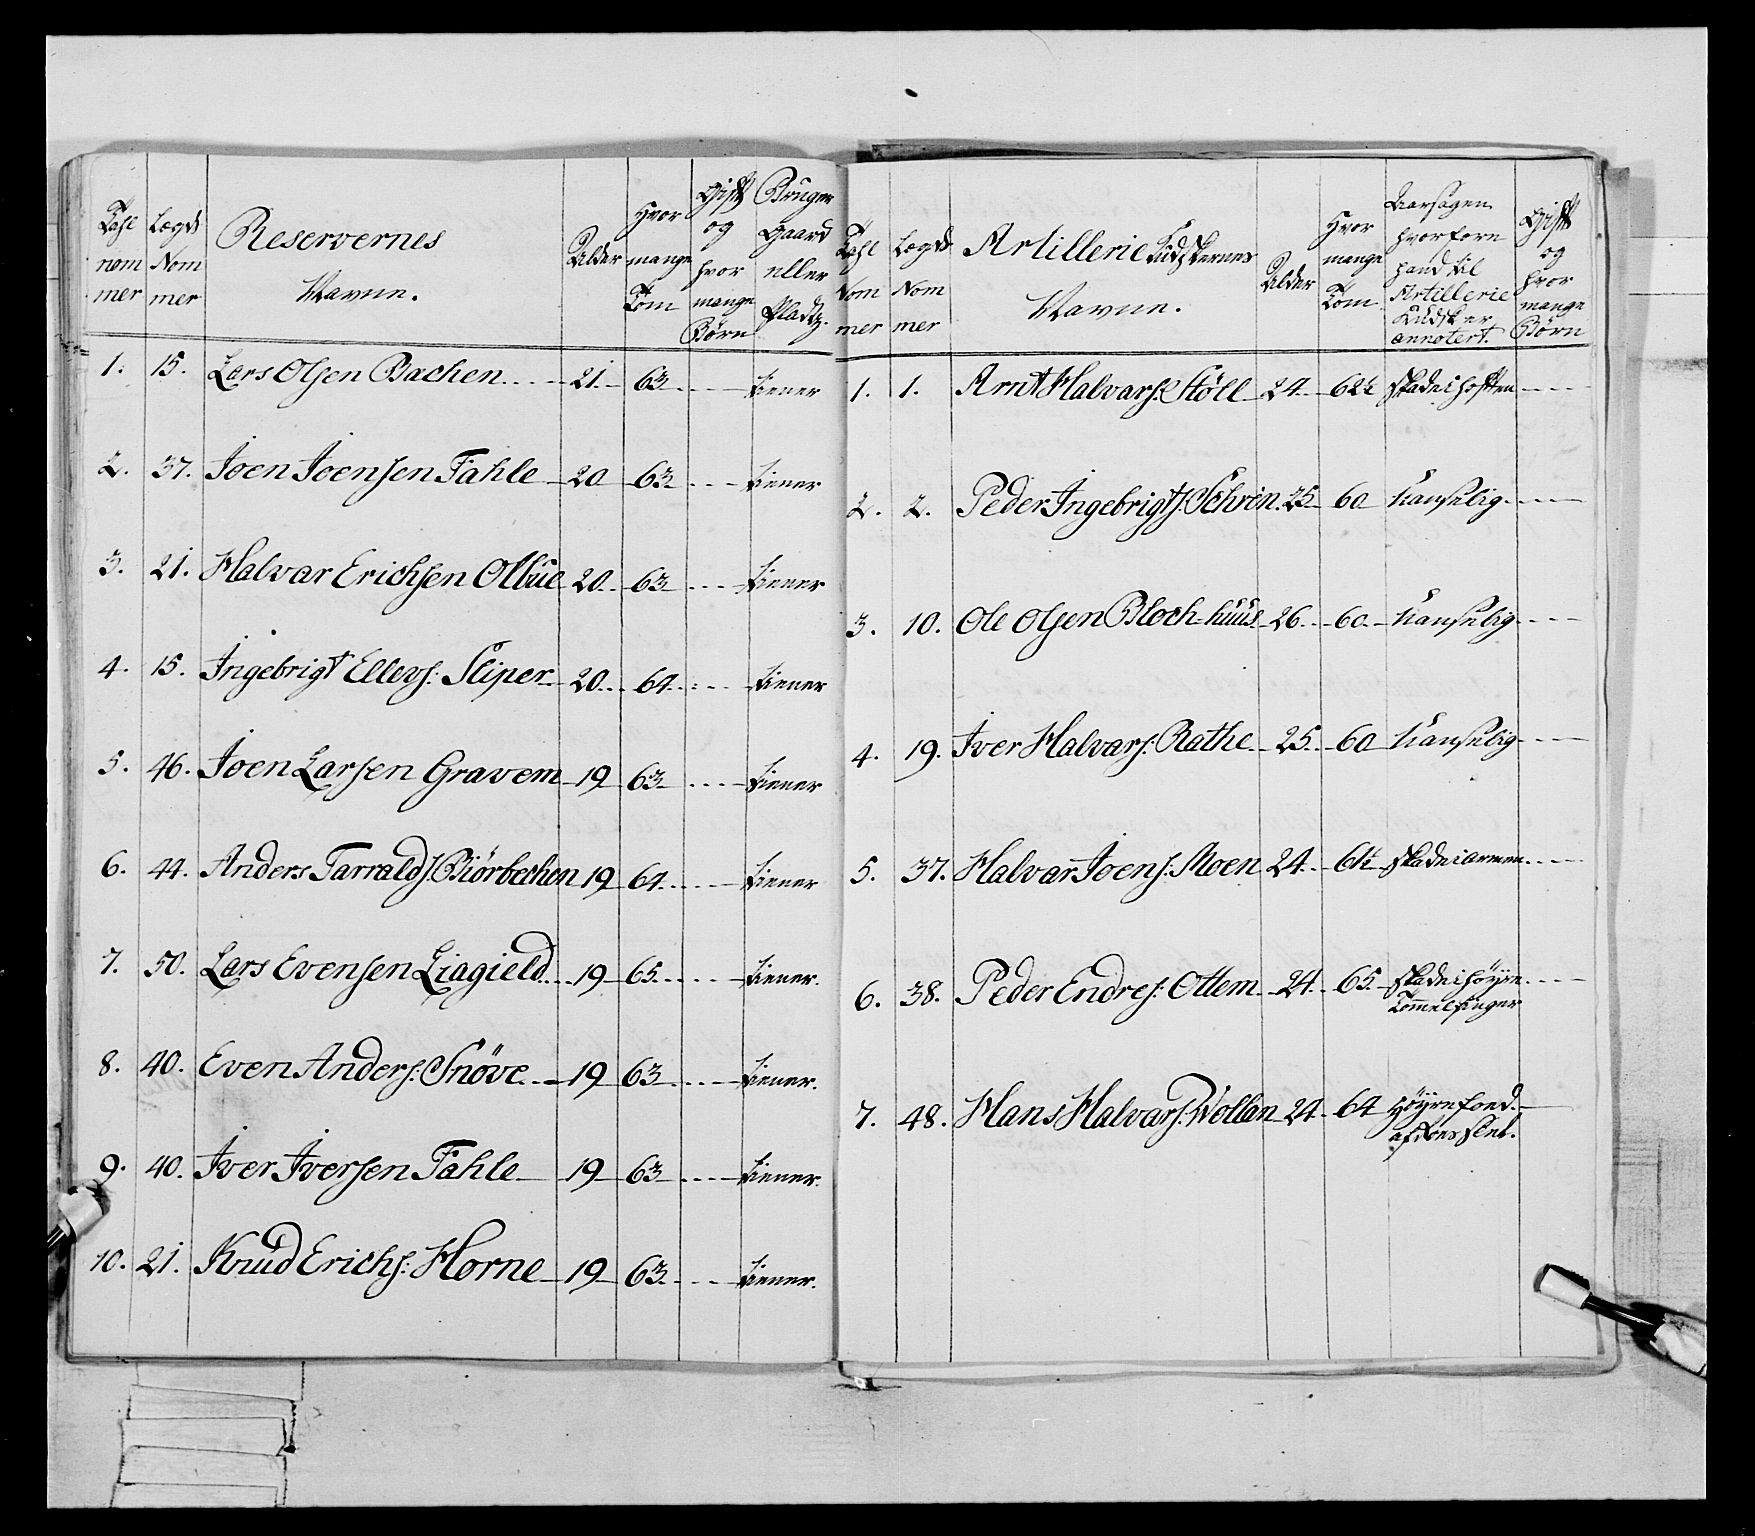 Tahl nom mer | Lægds Nom mer | Reservernes Navne. | Alder | Hvor mange Tom | Gift og hvor mange Börn | Bruger Gaard eller Pladtz.
1. 15. Lars Olsen Bachen 21 63 tiener
2. 37. Joen Joensen Fahle 20 63 tiener
3. 21. Halvar Erichsen Olbue 20 63 tiener
4. 15. Ingebrigt Ellevs: Sliper 20 64 tiener
5. 46. Joen Larsen Gravem 19 63 tiener
6. 44. Anders Tarralds: Biörbechen 19 64 tiener
7. 50. Lars Evensen Liagield 19 65 tiener.
8. 40. Even Anders: Snöve 19 63 tiener.
9. 40. Iver Iversen Fahle 19 63 tiener.
10. 21. Knud Erichs: Horne 19 63 tiener.
Tahl Nom mer | Lægds Nom mer | Artillerie Kudskernes Navne. | Alder | Hvor mange Tom | Aarsagen hvorforn hand til Artillerie Kudsker annotert. | Gift og hvor mange Börn
1. 1. Arnt Halvars: Stöll 24 62½ skade i hoften
2. 2. Peder Ingebrigts: Schrin 25 60 uanselig
3. 10. Ole Olsen Bloch-huus 26 60 uanselig
4. 19. Iver Halvars: Rathe 25 60 uanselig
5. 37. Halvar Joens: Moen 24 61½ skade i armen
6. 38. Peder Endres: Ottem 24 65 skade i höyre
Tommelfinger
7. 48. Hans Halvars: Wollan 24 64 Höyre haand